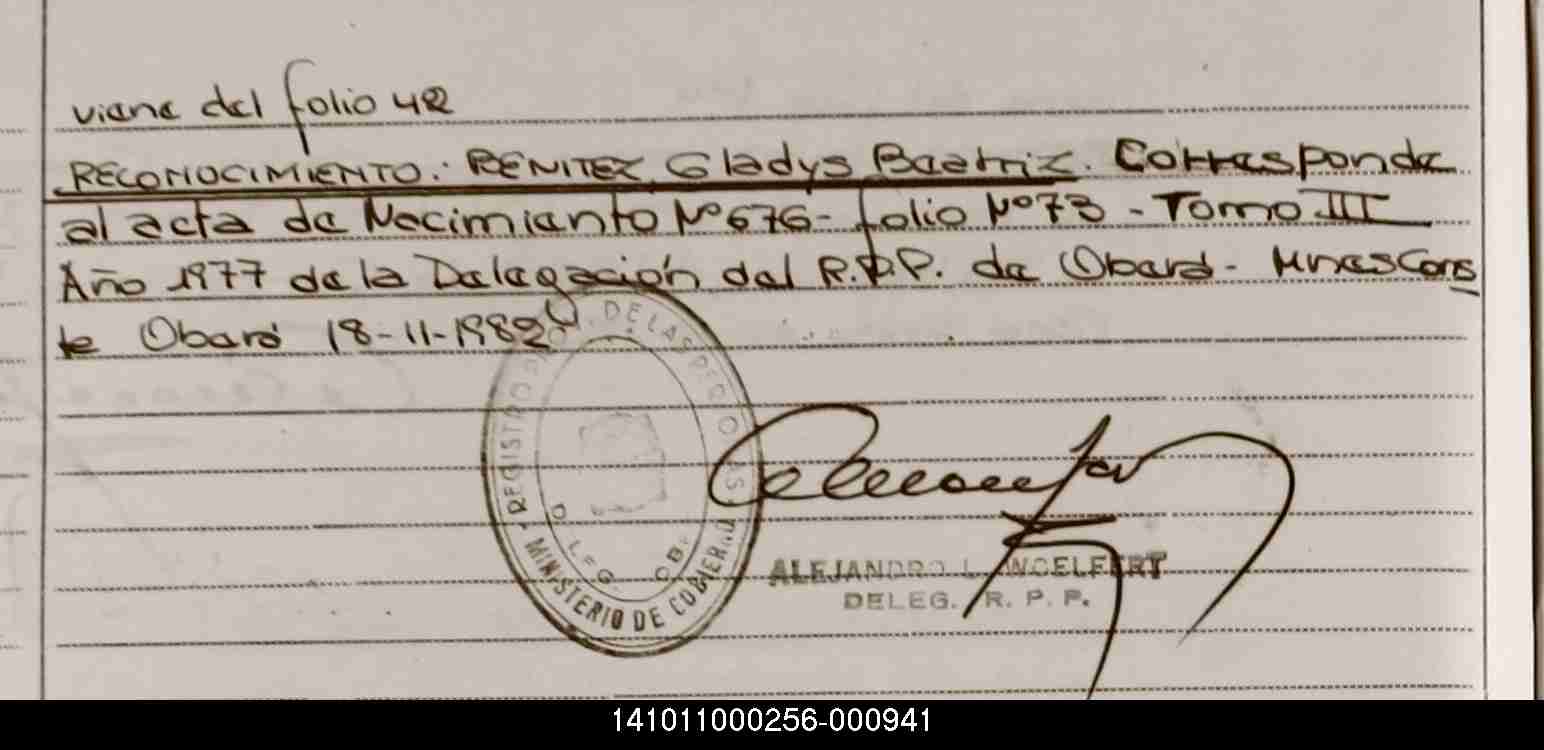 viene del folio 42
RECONOCIMIENTO: BENITEZ, Gladys Beatriz. Corresponde
al acta de Nacimiento Nº 676- folio Nº 73 - Tomo III
Año 1977 de la Delegación del R.P.P. de Oberá - Mnes Cons
te Oberá 18-11-1982
REGISTRO DE LAS PERSONAS
DELEG. OB
MINISTERIO DE GOBIERNO
ALEJANDRO L. WOELFERT
DELEG. R. P. P.
141011000256-000941